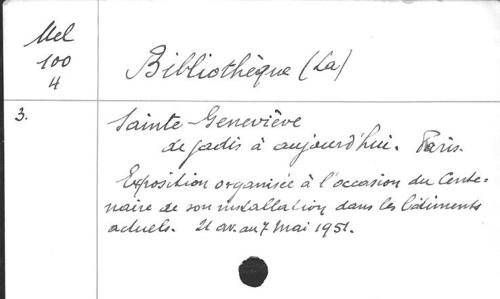 Mel
100
4
Bibliothèque (La)
3.
Sainte-Geneviève
de jadis à aujourd'hui. Paris.
Exposition organisée à l'occasion du Cente-
naire de son installation dans les bâtiments
actuels. 21 av. au 7 mai 1951.